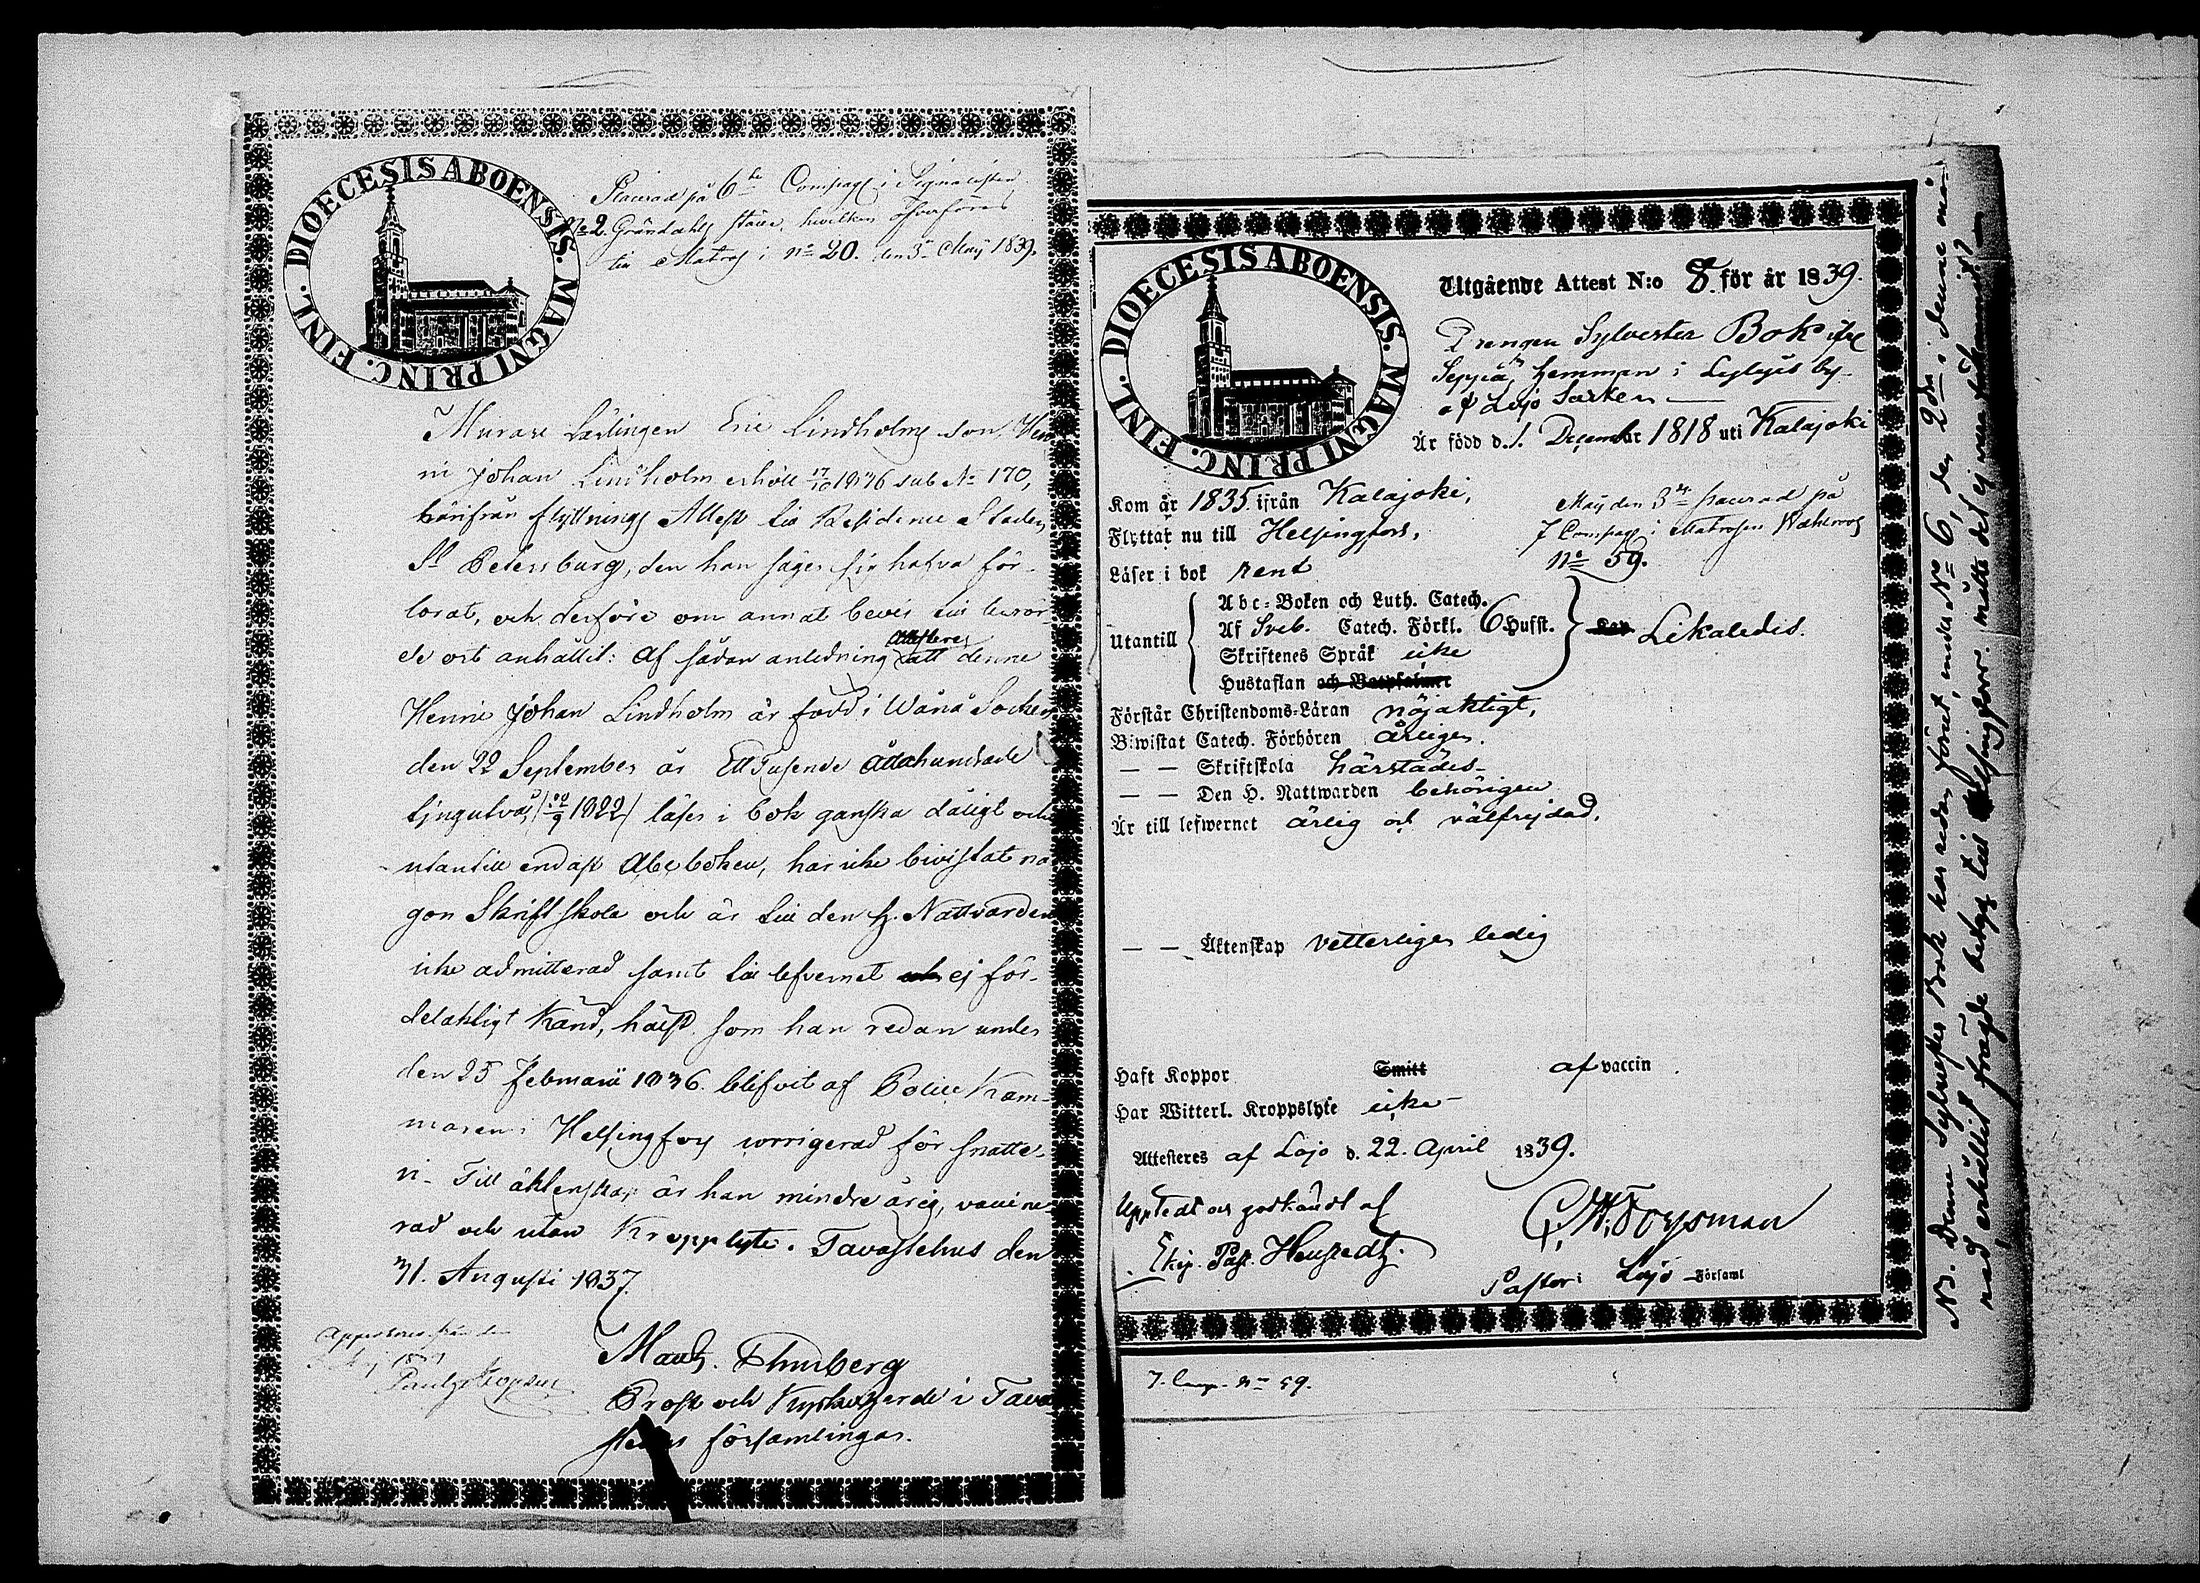 DIOECESIS ABOENSIS. MAGNI PRINC. FINL.
Placerad på 6te Compagt i Signalisten
No 2. Gröndahls ställe, hvilken öfverföres
till Matros i No 20. den 3e Maij 1839.
Murare Lärlingen Eric Lindholms son, Hen
ric Johan Lindholm erhöll 17/10 1836 sub No 170,
härifrån flyttnings Attest till Residence Staden
St Petersburg, den han säger sig hafva för-
lorat, och derföre om annat bevis till berör-
de ort anhållit: Af sådan anledning attesteras att denne
Henric Johan Lindholm är född i Wånå Socken
den 22 September år Ett Tusende Åttahundrade
tjugutvå, /22/9 1822/ läser i bok ganska dåligt och
utantill endast Abc boken, har icke bivistat nå
gon Skriftskola och är till den H. Nattvarden
icke admitterad samt till lefvernet ej för-
delaktigt känd, hälst som han redan under
den 25 Februarii 1836 blifvit af Police Kam-
maren i Helsingfors corrigerad för snatte-
ri. Till äktenskap är han mindre årig, vaccine-
rad och utan Kropplyte. Tavastehus den
31. Augusti 1837.
Mautz. Thunberg
Prost och Kyrkoherde i Tava
stehus församlingar.
DIOECESIS ABOENSIS. MAGNI PRINC. FINL.
Utgående Attest N:o 8. för år 1839.
Drengen Sylvester Bok ifrå
Seppälä hemman i Lylyis by
af Lojo Socken
Är född d. 1. December 1818 uti Kalajoki
Kom år 1835. ifrån Kalajoki,
Maij den 3e placerad på
Flyttar nu till Helsingfors,
7 Compagt i Matrosen Wahlroos
No 59.
Läser i bok rent
Utantill
Abc-Boken och Luth. Catech.
Af Sveb. Catech. Förkl. 6 Hufst.
Skriftenes Språk icke
Hustaflan och Botpsalmer
Lekaledes.
Förstår Christendoms-Läran nöjaktigt,
Biwistat Catech. Förhören årligen.
— — Skriftskola härstädes
— — Den H. Nattwarden behörigen
Är till lefwernet ärlig och välfrejdad.
— — Äktenskap vetterligen ledig
Haft Koppor Smitt af vaccin
Har Witterl. Kroppslyte icke
Attesteres af Lojo d. 22. April 1839.
Upptedt och godkändt af
C. H. Forsman
Ekip. Past. Heurstedt.
Pastor i Lojo Församl
7. Comp. No 59.
NB. Denne Sylvester Bok har redan förut, under No 6, den 2dre i denne må-
nad erhållit frägde betyg till Helsingfors. måtte det ej vara